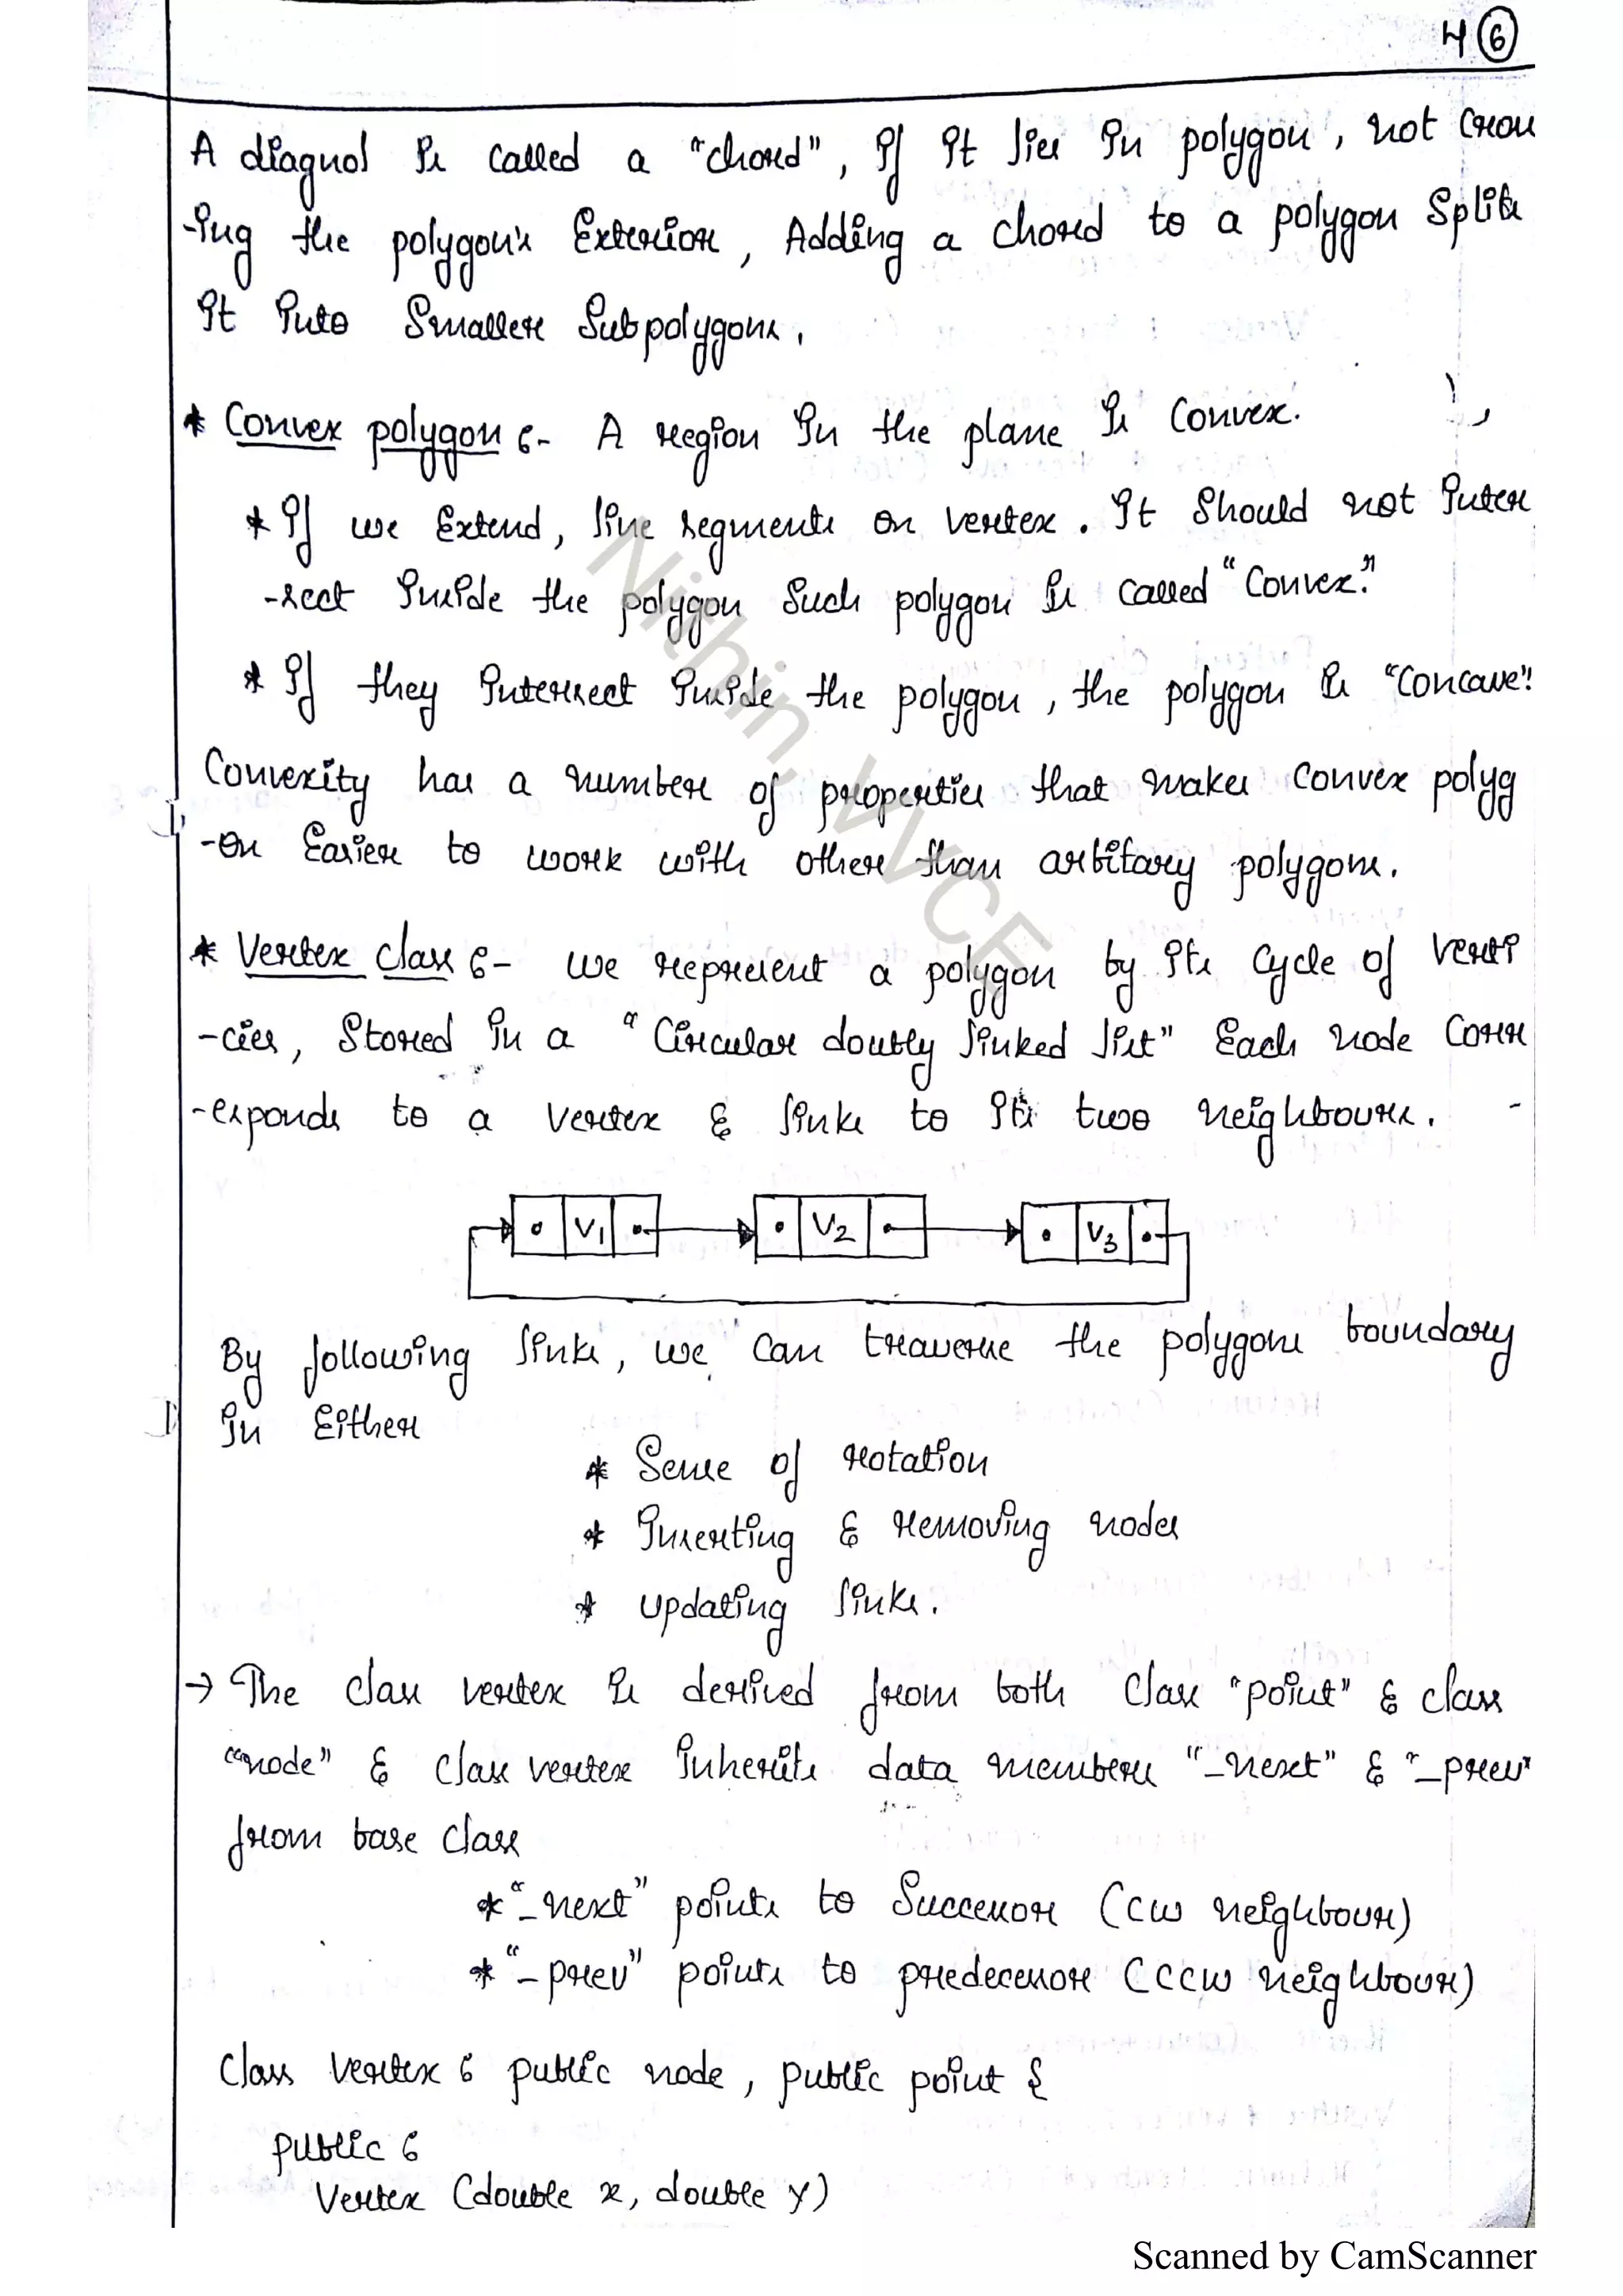 4 6
A diagnol is called a "chord", if it lies in polygon, not cross
-ing the polygon's Exterior, Adding a chord to a polygon Splits
it into Smaller Subpolygons.
* Convex polygon :- A region in the plane is Convex.
* If we Extend, line segments on vertex. It Should not inter
-sect inside the polygon Such polygon is called "Convex."
* If they intersect inside the polygon, the polygon is "Concave".
Convexity has a number of properties that makes Convex polyg
-on Easier to work with other than arbitary polygons.
* Vertex class :- we represent a polygon by its Cycle of verti
-cies, Stored in a "Circular doubly linked list" Each node Corr
-esponds to a vertex & links to its two neighbours.
V1 V2 V3
By following links, we can traverse the polygons boundary
in Either
* Sense of rotation
* Inserting & removing nodes
* updating links.
→ The class vertex is derived from both Class "point" & class
"node" & class vertex inherits data members "_next" & "_prev"
from base class
* "_next" points to Successor (cw neighbour)
* "_prev" points to predecessor (ccw neighbour)
Class Vertex : public node, public point {
public :
Vertex (double x, double y)
Nithin, VVCE
Scanned by CamScanner